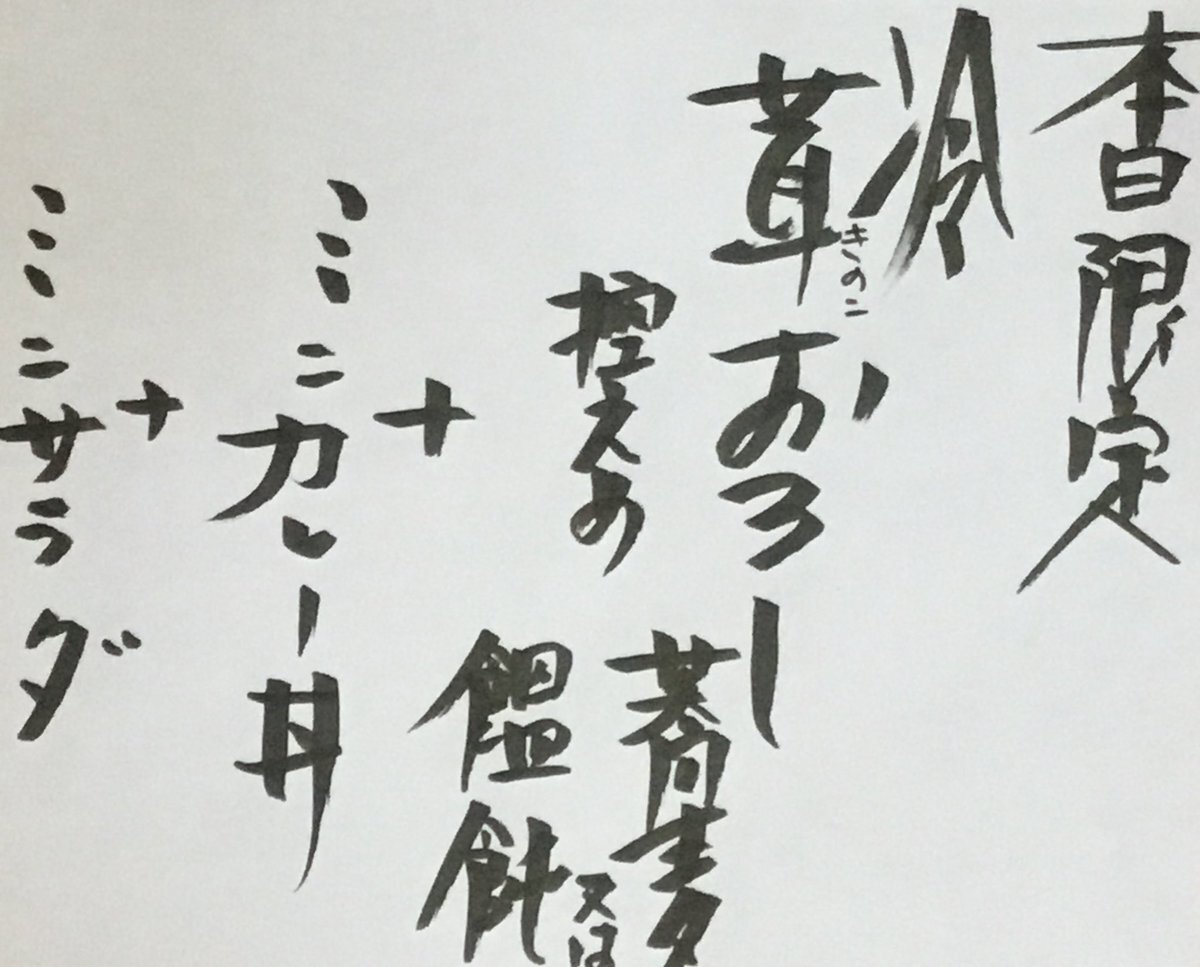 本日限定
冷
茸おろし
きのこ
控えめ
蕎麦
又は
饂飩
+
ミニカレー丼
+
ミニサラダ